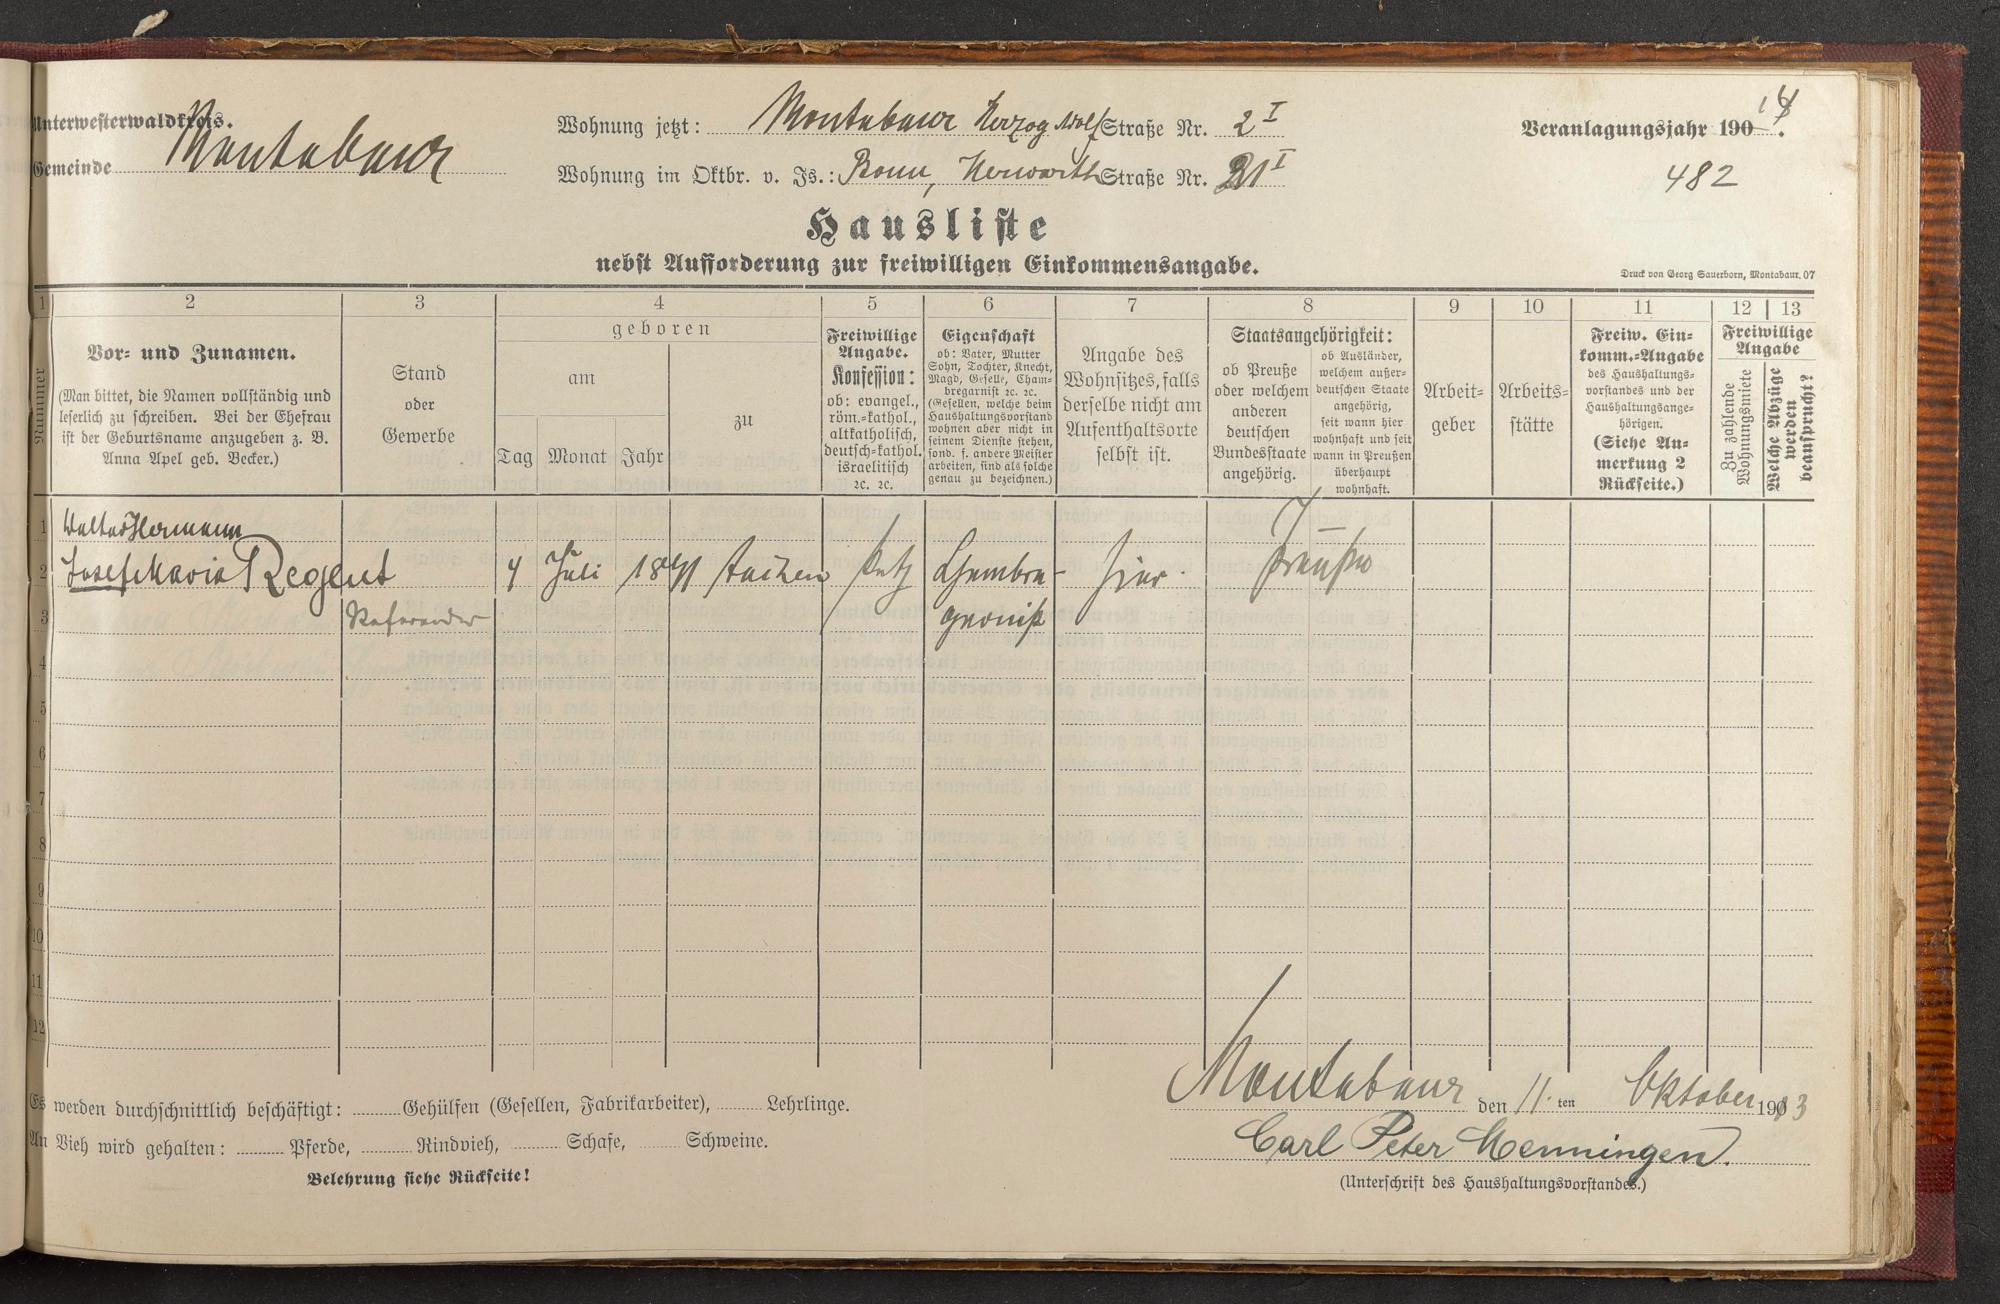 Unterwesterwaldkreis.
Gemeinde Montabaur
Wohnung jetzt: Montabaur Herzog Adolf Straße Nr. 2 I
Wohnung im Oktbr. v. Js.: Bonn, Herwarth Straße Nr. 21 I
Veranlagungsjahr 190 14.
482
Hausliste
nebst Aufforderung zur freiwilligen Einkommensangabe.
Druck von Georg Sauerborn, Montabaur. 07
1 2 3 4 5 6 7 8 9 10 11 12 13
Nummer
Vor- und Zunamen.
(Man bittet, die Namen vollständig und
leserlich zu schreiben. Bei der Ehefrau
ist der Geburtsname anzugeben z. B.
Anna Apel geb. Becker.)
Stand
oder
Gewerbe
geboren
am
Tag Monat Jahr
zu
Freiwillige
Angabe.
Konfession:
ob: evangel.,
röm.-kathol.,
altkatholisch,
deutsch-kathol.
israelitisch
2c. 2c.
Eigenschaft
ob: Vater, Mutter
Sohn, Tochter, Knecht,
Magd, Geselle, Cham-
bregarnist 2c. 2c.
(Gesellen, welche beim
Haushaltungsvorstand
wohnen aber nicht in
seinem Dienste stehen,
sond. f. andere Meister
arbeiten, sind als solche
genau zu bezeichnen.)
Angabe des
Wohnsitzes, falls
derselbe nicht am
Aufenthaltsorte
selbst ist.
Staatsangehörigkeit:
ob Preuße
oder welchem
anderen
deutschen
Bundesstaate
angehörig.
ob Ausländer,
welchem außer-
deutschen Staate
angehörig,
seit wann hier
wohnhaft und seit
wann in Preußen
überhaupt
wohnhaft.
Arbeit-
geber
Arbeits-
stätte
Freiw. Ein-
komm.-Angabe
des Haushaltungs-
vorstandes und der
Haushaltungsange-
hörigen.
(Siehe An-
merkung 2
Rückseite.)
Freiwillige
Angabe
Zu zahlende
Wohnungsmiete
Welche Abzüge
werden
beansprucht?
1 Walter Hermann
2 Josef Maria Regent 4 Juli 18 Aachen kath Chambre- hier. Preuße
3 Referendar garnist
4
5
6
7
8
9
10
11
12
Es werden durchschnittlich beschäftigt: Gehülfen (Gesellen, Fabrikarbeiter), Lehrlinge.
An Vieh wird gehalten: Pferde, Rindvieh, Schafe, Schweine.
Belehrung siehe Rückseite!
Montabaur den 11. ten Oktober 1913
Carl Peter Menningen.
(Unterschrift des Haushaltungsvorstandes.)